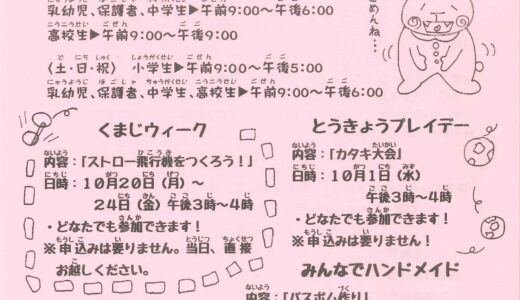 乳幼児、保護者、中学生▶午前9:00〜午後6:00
高校生▶午前9:00〜午後9:00
〈土・日・祝〉 小学生▶午前9:00〜午後5:00
乳幼児、保護者、中学生、高校生▶午前9:00〜午後6:00
ごめんね…
くまじウィーク
内容：「ストロー飛行機をつくろう！」
日時：10月20日（月）〜
24日（金）午後3時〜4時
・どなたでも参加できます！
※申込みは要りません。当日、直接
お越しください。
とうきょうプレイデー
内容：「カタキ大会」
日時：10月1日（水）
午後3時〜4時
・どなたでも参加できます！
※申込みは要りません！
みんなでハンドメイド
内容：「バスボム作り」